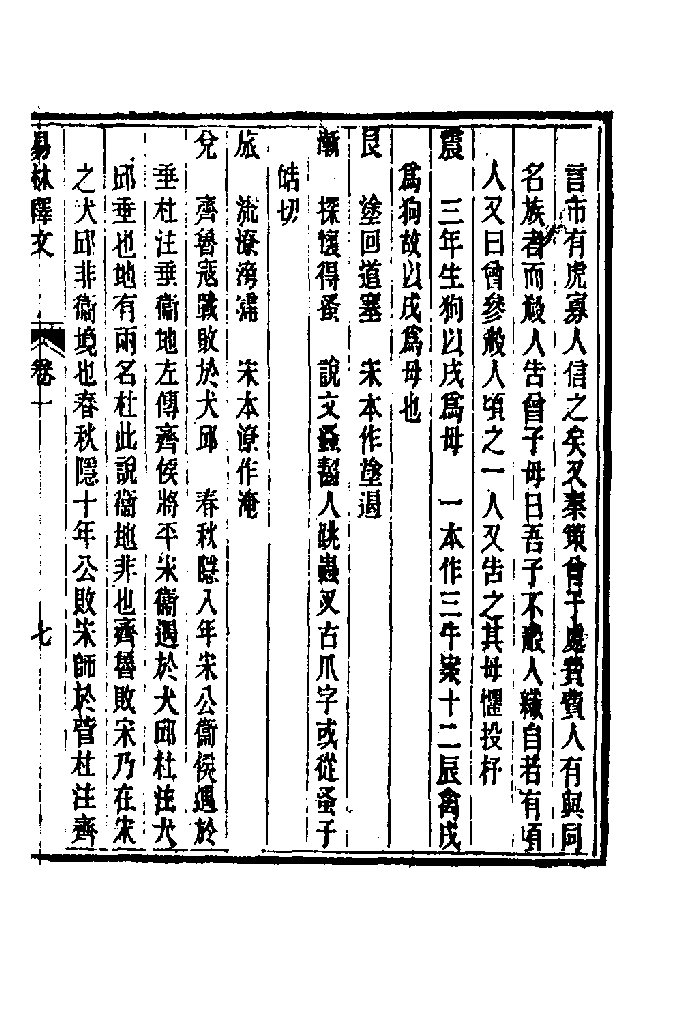 言市有虎寡人信之矣又秦策曾子處費費人有與同
名族者而殺人告曾子母曰吾子不殺人織自若有頃
人又曰曾參殺人頃之一人又告之其母懼投杼
震　三年生狗以戌爲母　一本作三年案十二辰禽戌
爲狗故以戌爲母也
艮　塗回道塞　宋本作塗遏
漸　探懷得蚤　說文蚤齧人跳蟲又古爪字或從蚤子
皓切
旅　流潦滂霈　宋本潦作淹
兌　齊魯寇戰敗於犬邱　春秋隱八年宋公衞侯遇於
垂杜注垂衞地左傳齊侯將平宋衞遇於犬邱杜注犬
邱垂也地有兩名杜此說衞地非也齊魯敗宋乃在宋
之犬邱非衞境也春秋隱十年公敗宋師於菅杜注齊
易林釋文　卷一　七